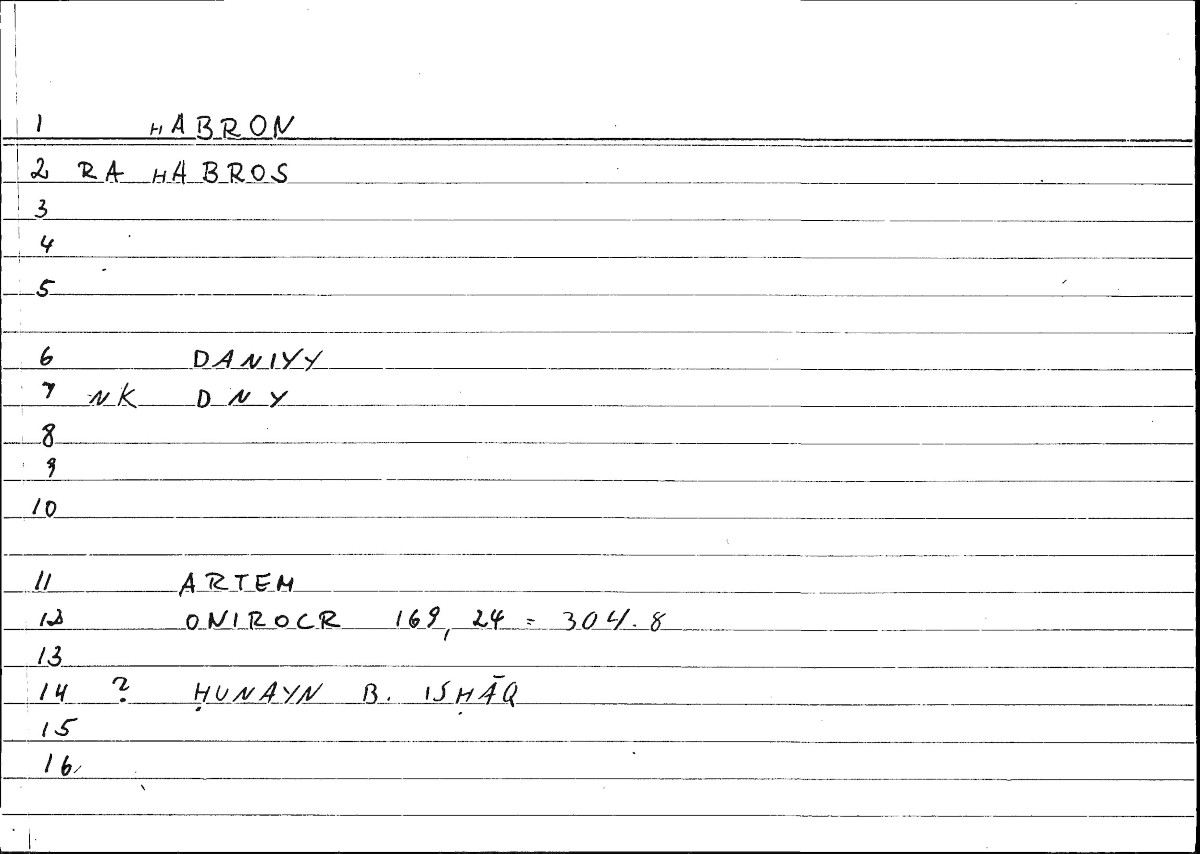 1 HABRON
2 RA HABROS
3
4
5
6 DANIYY
7 NK DNY
8
9
10
11 ARTEM
12 ONIROCR 169, 24 = 304.8
13
14 ? ḤUNAYN B. ISḤĀQ
15
16